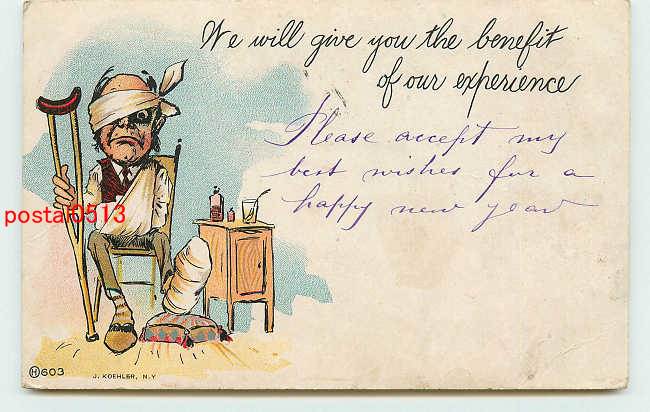 We will give you the benefit
of our experience
Please accept my
best wishes for a
happy new year
postal0513
H603
J. KOEHLER, N.Y.